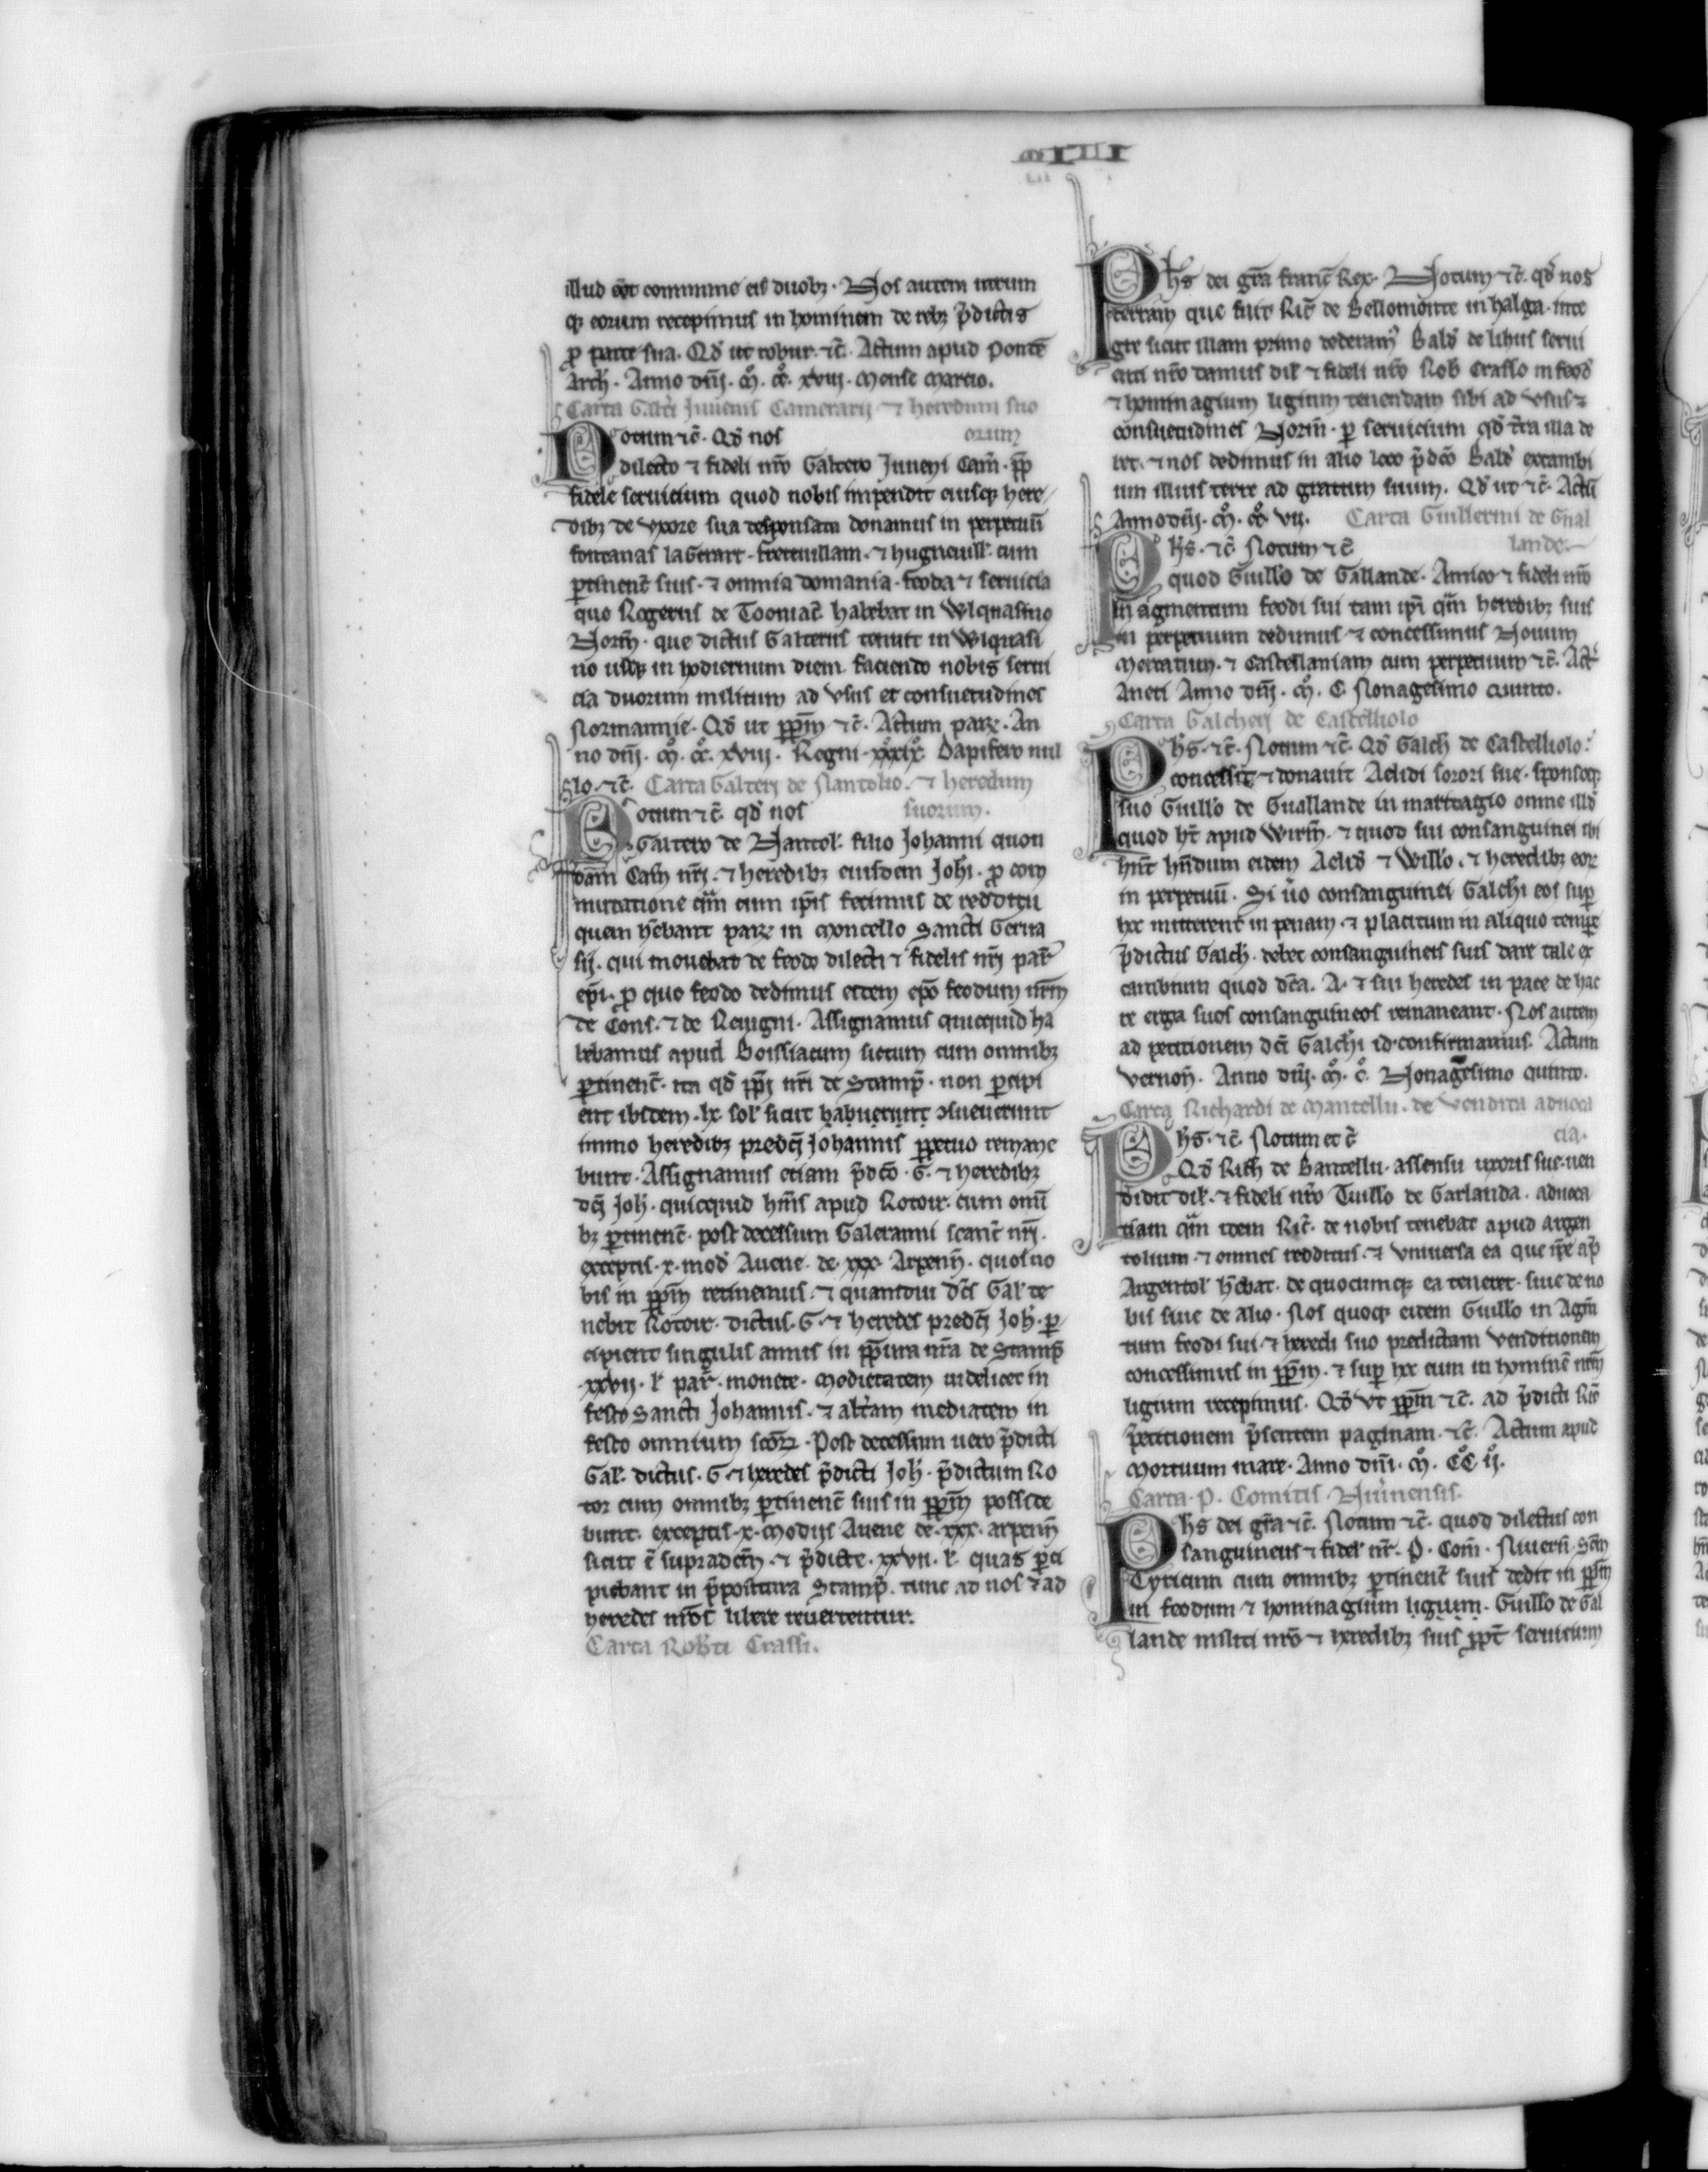 illud eēt commune eis duobȝ. Nos autem utrum
qȝ eorum recepimus in hominem de rebȝ p̄dictis
ꝓ parte sua. Qd̄ ut robur. ⁊c̄. Actum apud Pontē
Arch̄. Anno dn̄j. M̊. CC̊. xviij. Mense Marcio.
Carta Galt̄i Juuenis Camerarij ⁊ heredum suo
orum
Notum ⁊c̄. Qd̄ nos
dilecto ⁊ fideli nr̄o Galtero Juueni Cam̄. ꝓp̄
fidele seruicium quod nobis impendit eiusqȝ here
dibȝ de vxore sua desponsata donamus in perpetuū
fontanas la Gerart. ⁊ hugneuill̄. cum
ꝑtinenc̄ suis. ⁊ omnia domania. feoda ⁊ seruicia
que Rogerus de Tooniac̄ habebat in Wlquasino
Norm̄. que dictus Galterus tenuit in Wlquasi
no usqȝ in hodiernum diem. faciendo nobis serui
cia duorum militum ad vsus et consuetudines
Normannie. Qd̄ ut ꝑpm̄ ⁊c̄. Actum parꝝ. An
no dn̄j. M̊. CC̊. xviij. Regni xxxix̊. Dapifero nul
lo. ⁊c̄. Carta Galterj de Nantolio. ⁊ heredum
Notum ⁊c̄ qd̄ nos suorum.
Galtero de Nantol̄. filio Johanni quon
dam Cam̄ nr̄j. ⁊ heredibȝ eiusdem Joh̄i. ꝓ com
mutatione qm̄ cum ip̄is fecimus de redditu
quem hēbant parꝝ in Moncello Sancti Gerua
sij. qui mouebat de feodo dilecti ⁊ fidelis nr̄j par̄
ep̄i. ꝓ quo feodo dedimus eidem ep̄o feodum nr̄m
de Cons. ⁊ de Assignamus quicquid ha
bebamus apud Boissiacum siccum cum omnibȝ
ꝑtinenc̄. ita qd̄ pp̄j nr̄i de Stamp̄. non ꝑcipi
ent ibidem. lx. sol̄ sicut habuerunt ↄsueuerunt
immo heredibȝ predc̄j Johannis ꝑpetuo remane
bunt. Assignamus etiam p̄dc̄o. G. ⁊ heredibȝ
dc̄j Joh̄. quicquid hm̄s apud Rotoir. cum omni
bȝ ꝑtinenc̄. post decessum Galeranni nr̄j.
exceptis. x. mod̄ Auene. de. xxx. Arpenn̄. quos no
bis in ꝑpm̄ retinemus. ⁊ quamdiu dc̄s Gal̄ te
nebit Rotoir. dictus. G. ⁊ heredes predc̄j Joh̄. ꝑ
cipient singulis annis in ꝓp̄itura nr̄a de Stamp̄
xxvij. l̄ par̄. monete. Medietatem uidelicet in
festo Sancti Johannis. ⁊ alt̄am mediatem in
festo omnium sc̄orꝝ. Post decessum uero p̄dicti
Gal̄. dictus. G. ⁊ heredes p̄dicti Joh̄. p̄dictum Ro
tor cum omnibȝ ꝑtinenc̄ suis in ꝑpm̄ posside
bunt. exceptis. x. Modijs Auene de. xxx. arpenn̄
sicut ē supradc̄m. ⁊ p̄dicte. xxvii. l̄. quas ꝑci
piebant in p̄positura Stamp̄. tunc ad nos ⁊ ad
heredes nr̄os libere reuertentur.
Carta Rob̄ti Crassi.
Ph̄s dei gr̄a franc̄ Rex. Notum ⁊c̄. qd̄ nos
terram que fuit Ric̄ de Bellomonte in halga. inte
gre sicut illam primo dederam⁹ Bald̄ de seruí
enti nr̄o damus dil̄ ⁊ fideli nr̄o Rob̄ Crasso in feod̄
⁊ hominagium ligium tenendam sibi ad vsus ⁊
consuetudines Norm̄. ꝑ seruicium qd̄ t̄ra illa de
bet. ⁊ nos dedimus in alio loco p̄dc̄o Bald̄ excambi
um illius terre ad gratum suum. Qd̄ ut ⁊c̄. Actū
Anno dn̄j. M̊. CC̊. vij. Carta Guillermi de Gual
lande.
Ph̄s. ⁊c̄ Notum ⁊c̄
quod Guill̄o de Gallande. Amico ⁊ fideli nr̄o
in agmentum feodi sui tam ip̄i qm̄ heredibȝ suis
in perpetuum dedimus ⁊ concessimus Nouum
Mercatum. ⁊ Castellaniam cum perpetuum ⁊c̄. Act̄
Aneti Anno dn̄j. M̊. C. Nonagesimo quinto.
Carta Galcherj de Castelliolo
Ph̄s. ⁊c̄. Notum ⁊c̄. Qd̄ Galch̄ de Castelliolo.
concessit ⁊ donauit Aelidi sorori sue. sponsoqȝ
suo Guill̄o de Guallande in maritagio omne illd̄
quod ht̄ apud Wirm̄. ⁊ quod sui consanguinei ibi
hn̄t hn̄dum eidem Aelid̄ ⁊ Will̄o. ⁊ heredibȝ eoꝝ
in perpetuū. Si u̇o consanguinei Galch̄i eos suꝑ
hoc mitterent in penam. ⁊ placitum in aliquo tempe
p̄dictus Galch̄. debet consanguineis suis dare tale ex
cambium quod dc̄a. A. ⁊ sui heredes in pace de hac
re erga suos consanguineos remaneant. Nos autem
ad petitionem dc̄i Galch̄i id confirmamus. Actum
Vernon̄. Anno dn̄j. M̊. C̊. Nonagesimo quinto.
Carta Richardi de Mantellu. de Vendita aduoca
cia.
Ph̄s. ⁊c̄. Notum et c̄
Qd̄ Rich̄ de Bantellu. assensu uxoris sue. uen
didit dil̄. ⁊ fideli nr̄o Guill̄o de Garlanda. aduoca
tiam qm̄ idem Ric̄. de nobis tenebat apud argen
tolium. ⁊ omnes redditus. ⁊ vniuersa ea que ip̄e ap̄
Argentol̄ hēbat. de quocumqȝ ea teneret. siue de no
bis siue de alio. Nos quoqȝ eidem Guill̄o in Agm̄
tum feodi sui. ⁊ heredi suo predictam venditionem
concessimus in ꝑpm̄. ⁊ suꝑ hoc eum in hominē nr̄m
ligium recepimus. Qd̄ vt ꝑpm̄ ⁊c̄. ad p̄dicti Ric̄
petitionem p̄sentem paginam. ⁊c̄. Actum apud
Mortuum mare. Anno dn̄i. M̊. CC̊ ij̊.
Carta. P. Comitis Niuinensis.
Ph̄s dei gr̄a ⁊c̄. Notum ⁊c̄. quod dilectus con
sanguineus ⁊ fidel̄ nr̄. P. Com̄. Niuern̄. Scm̄
Cyricum cum omnibȝ ꝑtinenc̄ suis dedit in ꝑpm̄
in feodum ⁊ hominagium ligium. Guill̄o de Gal
lande militi nr̄o ⁊ heredibȝ suis ꝓpt̄ seruicium